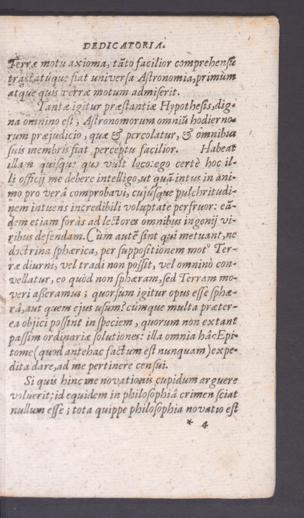 DEDICATORIA.
Terræ motu axioma, tãto facilior comprehensu
tractatúque fiat universa Astronomia, primum
atque quis Terræ motum admiserit.
Tantæ igitur præstantiæ Hypothesis, dig-
na omnino est, Astronomorum omniũ hodierno-
rum præjudicio, quæ & percolatur, & omnibus
suis membris fiat perceptu facilior. Habeat
illam quisque quo vult loco: ego certè hoc il-
li officij me debere intelligo, ut quã intus in ani-
mo pro verâ comprobavi, cujusque pulchritudi-
nem intuens incredibili voluptate perfruor: eã-
dem etiam foràs ad lectores omnibus ingenij vi-
ribus defendam. Cùm autẽ sint qui metuant, ne
doctrina sphærica, per suppositionem mot⁹ Ter-
ræ diurni, vel tradi non possit, vel omninò con-
vellatur, eo quòd non sphæram, sed Terram mo-
veri asseramus; quorsum igitur opus esse sphæ-
râ, aut quem ejus usum? cùmque multa præter-
ea objici possint in speciem, quorum non extant
passim ordinariæ solutiones: illa omnia hâc Epi-
tome (quod antehac factum est nunquam) expe-
dita dare, ad me pertinere censui.
Si quis hinc me novationis cupidum arguere
voluerit; id equidem in philosophiâ crimen sciat
nullum esse; tota quippe philosophia novatio est
* 4